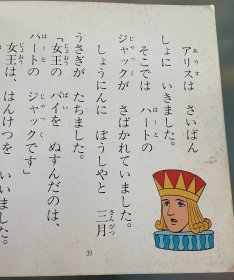 アリスは さいばん
しょに いきました。
そこでは ハートの
ジャックが さばかれていました。
しょうにんに ぼうしやと 三月
うさぎが たちました。
「女王の パイを ぬすんだのは、
ハートの ジャックです」
女王は、はんけつを いいました。
39